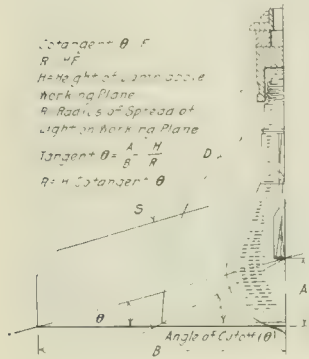 Cotangent θ = F
R = HF
H = Height of Lamp above
Working Plane
R = Radius of Spread of
Light on Working Plane
Tangent θ = A/B = H/R
R = H Cotangent θ
D
S
A
θ
Angle of Cutoff (θ)
B